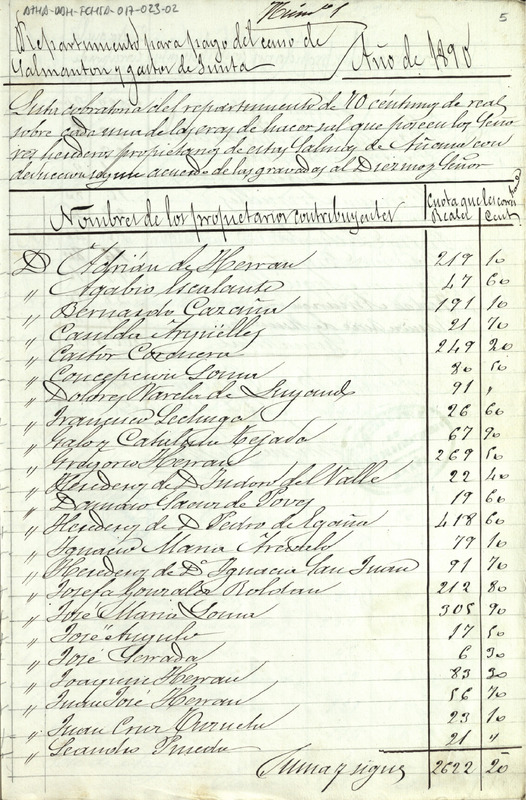 ATHA-DAH-FCHSA-017-023-02
Núm.º 1
5
Repartimiento para pago del censo de
Salmanton y gastos de Junta
Año de 1890
Lista cobratoria del repartimiento de 70 céntimos de real
sobre cada una de las eras de hacer sal que poseen los Seño
res herederos propietarios de estas Salinas de Añana con
deduccion segun acuerdo de las gravadas al Diezmo y Señor
Nombres de los propietarios contribuyentes
Cuota que les corresp
Reales Cent.
D Adrián de Herran 219 10
" Agabio Escalante 47 60
" Bernardo Cazaña 191 10
" Casilda Argüelles 21 70
" Castor Cordnera 249 20
" Concepcion Loma 80 50
" Dolores Varela de 91 "
" Francisco Lechuga 26 60
" Galo y Catalina Tejada 67 90
" Gregorio Herran 269 50
" Herederos de D Isidoro del Valle 22 40
" Damaso Saenz de 19 60
" Herederos de D Pedro de Egaña 418 60
" Ignacio Maria Arevalo 79 10
" Herederos de Dª Ignacia San Juan 91 70
" Josefa Gonzalez Roldan 212 80
" José Maria Loma 305 90
" José Angulo 17 50
" José Cerrada 6 30
" Joaquin Herran 83 30
" Juan José Herran 56 70
" Juan Cruz 23 10
" Leandro Pineda 21 "
Suma y sigue 2622 20